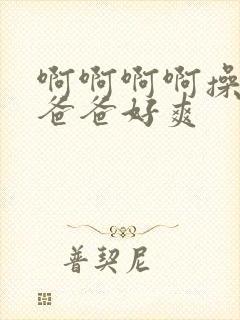 啊啊啊啊操
爸爸好爽
普契尼